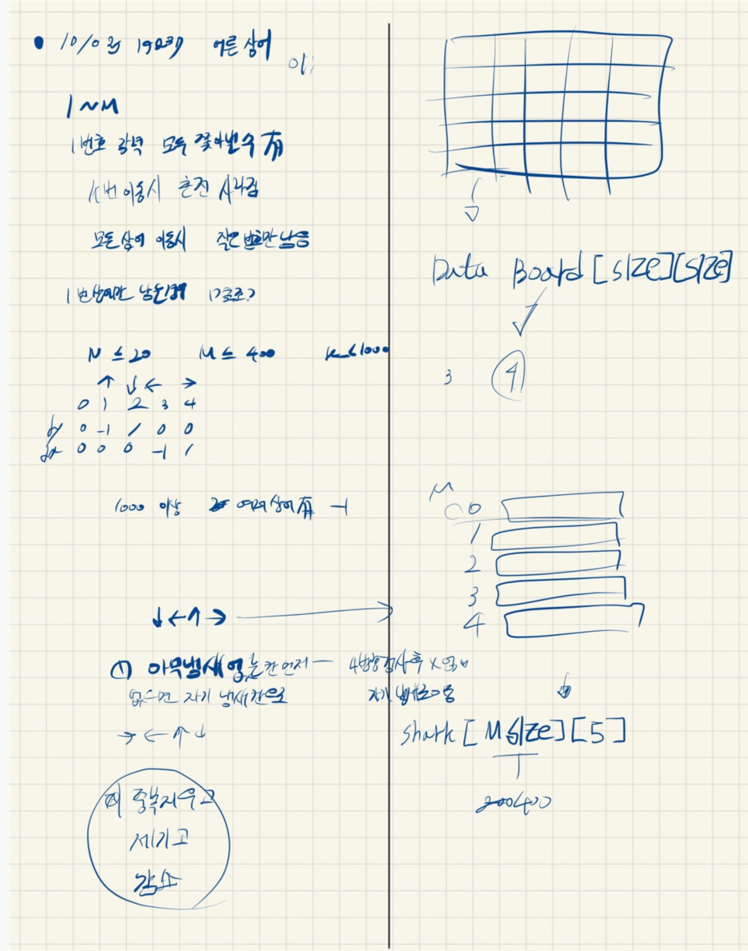 • 10/0 어른 상어
1~M
1번호 강력 모두 쫓아낼수 有
K번 이동시 흔적 사라짐
모든상어 이동시 작은 번호만 남음
1번상어만
N ≤ 20 M ≤ 400 K ≤ 1000
↑ ↓ ← →
0 1 2 3 4
dy 0 -1 1 0 0
dx 0 0 0 -1 1
1000 이상 여러상어 有 -1
↓ ← ↑ →
① 아무냄새 없는 칸 먼저 — 4방향검사후 X
없으면 자기 냄새칸으로 자기 냄새로이동
→ ← ↑ ↓
중복지우고
세기고
감소
Data Board[SIZE][SIZE]
3 4
M
0
1
2
3
4
shark[MSIZE][5]
400